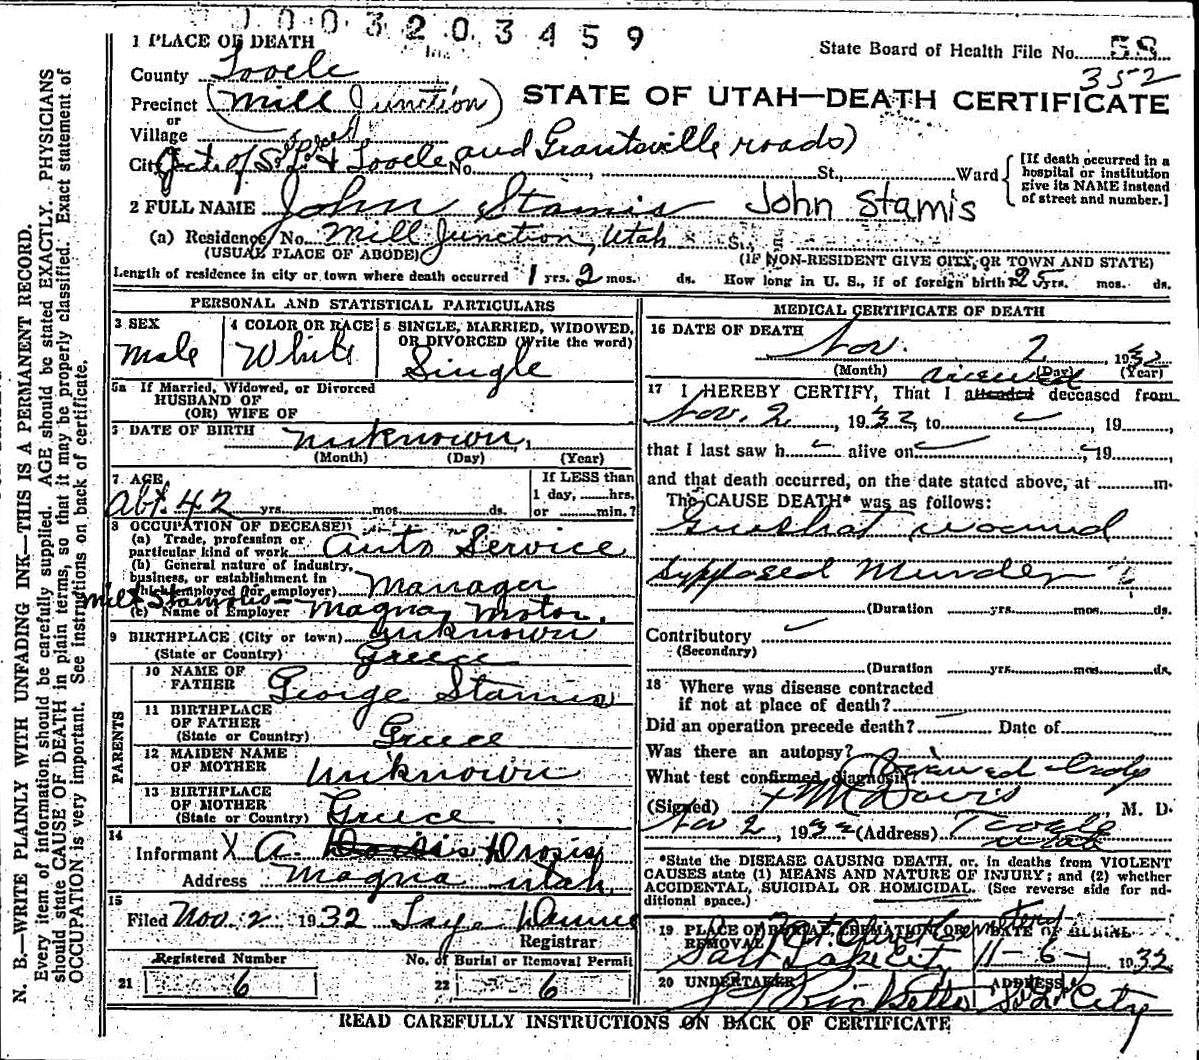 0003203459
1 PLACE OF DEATH
State Board of Health File No. 58
352
County Tooele
Precinct (Mill Junction)
STATE OF UTAH—DEATH CERTIFICATE
or
Village
City Jct. of S. L. & Tooele and Grantsville roads)
No. , St., Ward
[If death occurred in a hospital or institution give its NAME instead of street and number.]
2 FULL NAME John Stamis John Stamis
(a) Residence, No. Mill Junction, Utah St.,
(USUAL PLACE OF ABODE) (IF NON-RESIDENT GIVE CITY, OR TOWN AND STATE)
Length of residence in city or town where death occurred 1 yrs. 2 mos. ds. How long in U. S., if of foreign birth 25 yrs. mos. ds.
PERSONAL AND STATISTICAL PARTICULARS
3 SEX
Male
4 COLOR OR RACE
White
5 SINGLE, MARRIED, WIDOWED, OR DIVORCED (Write the word)
Single
5a If Married, Widowed, or Divorced
HUSBAND OF
(OR) WIFE OF
6 DATE OF BIRTH unknown,
(Month) (Day) (Year)
7 AGE
Abt. 42 yrs. mos. ds.
If LESS than
1 day, hrs.
or min.?
8 OCCUPATION OF DECEASED
(a) Trade, profession or particular kind of work Auto Service
(b) General nature of industry, business, or establishment in which employed (or employer) Manager
(c) Name of Employer Magna Motor.
9 BIRTHPLACE (City or town) unknown
(State or Country) Greece
PARENTS
10 NAME OF FATHER George Stamis
11 BIRTHPLACE OF FATHER
(State or Country) Greece
12 MAIDEN NAME OF MOTHER Unknown
13 BIRTHPLACE OF MOTHER
(State or Country) Greece
14
Informant X A. Drosis
Address Magna Utah
15
Filed Nov. 2 1932
Registrar
Registered Number
21 6
No. of Burial or Removal Permit
22 6
MEDICAL CERTIFICATE OF DEATH
16 DATE OF DEATH
Nov. 2, 1932
(Month) (Day) (Year)
viewed
17 I HEREBY CERTIFY, That I attended deceased from
Nov. 2, 1932, to , 19
that I last saw h alive on , 19
and that death occurred, on the date stated above, at m.
The CAUSE DEATH* was as follows:
Gunshot wound
Supposed Murder
(Duration yrs. mos. ds.
Contributory
(Secondary)
(Duration yrs. mos. ds.
18 Where was disease contracted
if not at place of death?
Did an operation precede death? Date of
Was there an autopsy?
What test confirmed diagnosis? Viewed body
(Signed) M Davis M. D.
Nov 2, 1932 (Address) Tooele
Utah
*State the DISEASE CAUSING DEATH, or, in deaths from VIOLENT
CAUSES state (1) MEANS AND NATURE OF INJURY; and (2) whether
ACCIDENTAL, SUICIDAL OR HOMICIDAL. (See reverse side for additional space.)
19 PLACE OF BURIAL, CREMATION OR REMOVAL
Mt. Olivet Cemetery
Salt Lake City
DATE OF BURIAL
11-6-, 1932
20 UNDERTAKER
Ricketts
ADDRESS
S. L. City
READ CAREFULLY INSTRUCTIONS ON BACK OF CERTIFICATE
N. B.—WRITE PLAINLY WITH UNFADING INK—THIS IS A PERMANENT RECORD.
Every item of information should be carefully supplied. AGE should be stated EXACTLY. PHYSICIANS
should state CAUSE OF DEATH in plain terms, so that it may be properly classified. Exact statement of
OCCUPATION is very important. See instructions on back of certificate.